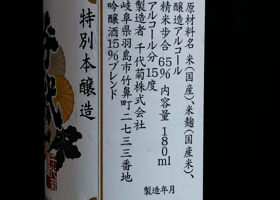 原材料名 米(国産)、米麹(国産米)、
醸造アルコール
精米歩合 65% 内容量 180ml
アルコール分 15度
製造者 千代菊株式会社
岐阜県羽島市竹鼻町二七三三番地
吟醸酒15%ブレンド
製造年月
特別本醸造